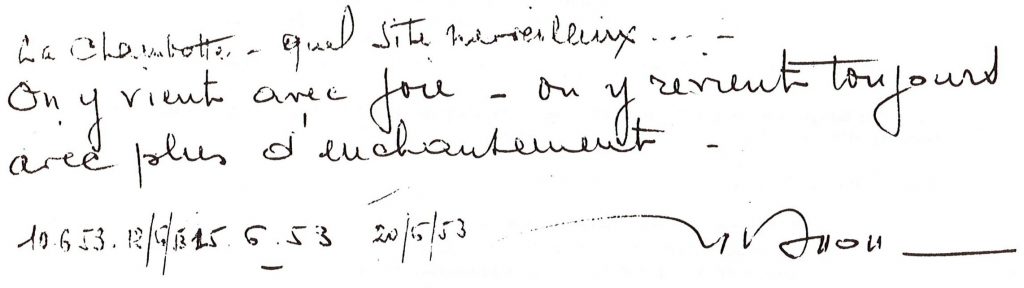 La Chambotte - quel site merveilleux.... -
On y vient avec joie - on y revient toujours
avec plus d'enchantement -
10.6.53. 12/6/53 15.6.53 20/6/53